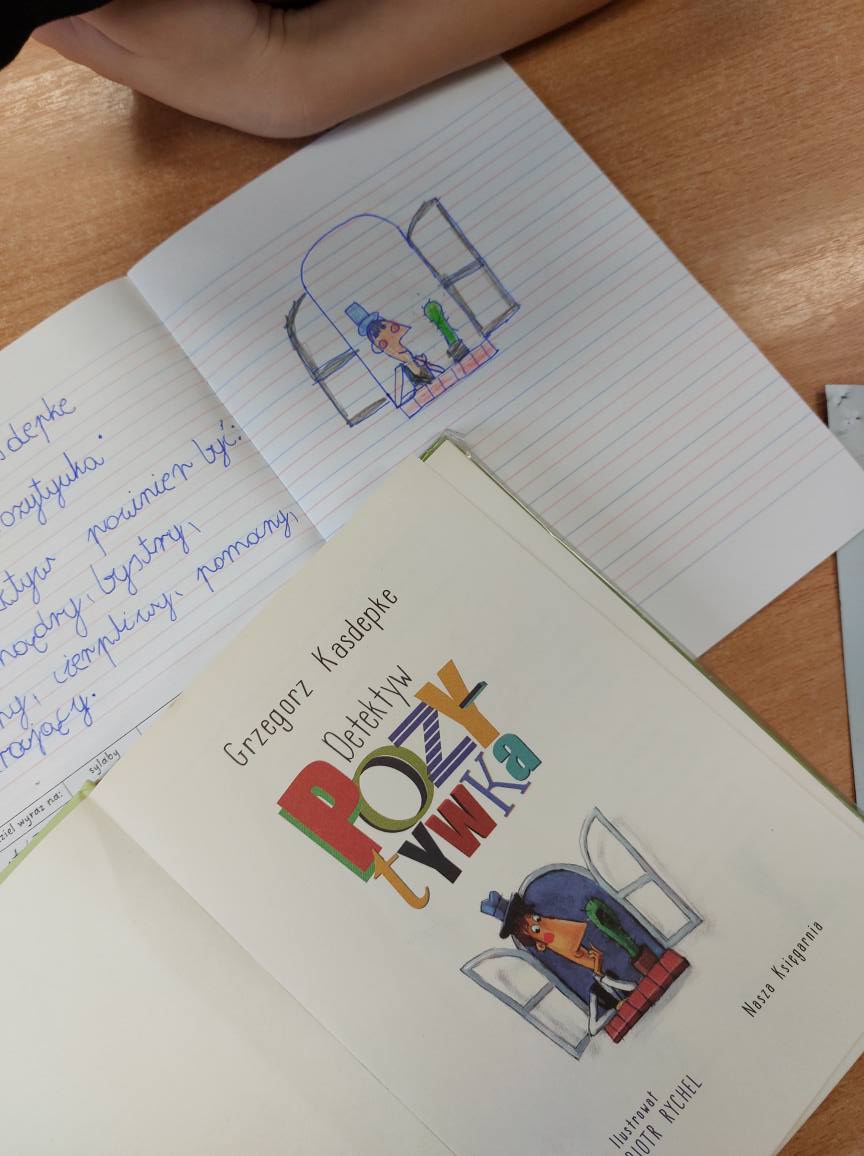 sdepke
ozytywka"
ktyw powinien być:
mądry, bystry,
ny, cierpliwy, pomocny,
rający.
ziel wyraz na:
sylaby
Grzegorz Kasdepke
Detektyw
POZY
tYWKa
Nasza Księgarnia
Ilustrował
PIOTR RYCHEL